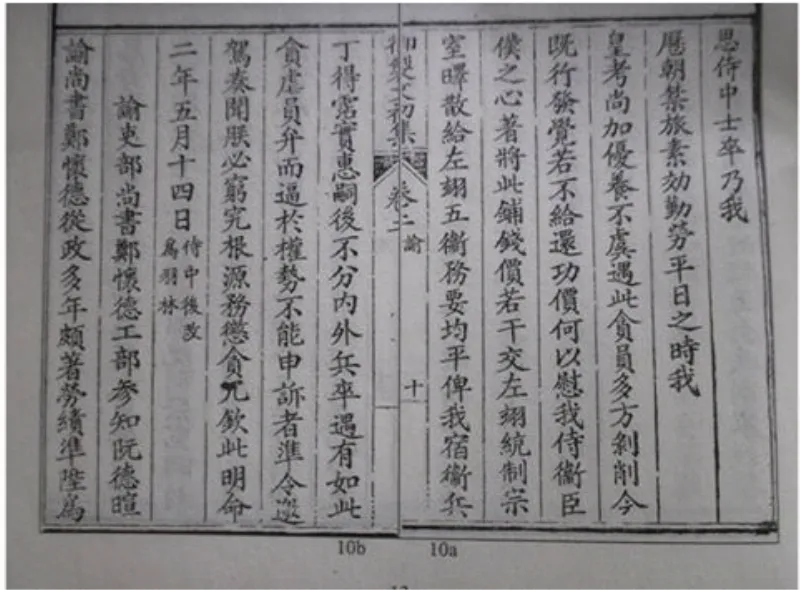 思侍中士卒乃我
歷朝禁旅素効勤勞平日之時我
皇考尚加優養不虞遇此貪員多方剝削今
既行發覺若不給還功價何以慰我侍衛臣
僕之心著將此鋪錢價若干交左翊統制宗
室曎散給左翊五衛務要均平俾我宿衛兵
御製文初集 卷二 諭 十
丁得霑實惠嗣後不分內外兵卒遇有如此
貪虐員弁而逼於權勢不能申訴者準令邀
駕奏聞朕必窮究根源務懲貪兇欽此明命
二年五月十四日 侍中後改爲羽林
諭吏部尚書鄭懷德工部參知阮德暄
諭尚書鄭懷德從政多年頗著勞績準陞爲
10b 10a